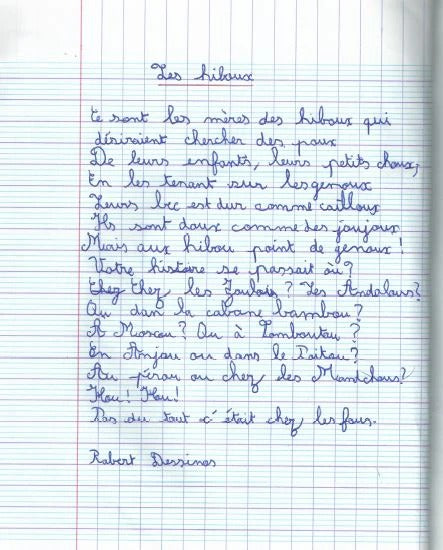 Les hiboux
Ce sont les mères des hiboux qui
désiraient chercher des poux
De leurs enfants, leurs petits choux,
En les tenant sur lesgenoux
Leurs bec est dur comme cailloux
Ils sont doux comme des joujoux
Mais aux hibou point de genoux !
Votre histoire se passait où?
Chez Chez les Zoulous? Les Andalous?
Ou dan la cabane bambou?
A Moscou? Ou à Tombouctou ?
En Anjou ou dans le Poitou?
Au pérou ou chez les Mandchous?
Hou! Hou!
Pas du tout c'était chez les fous.
Robert Dessinos